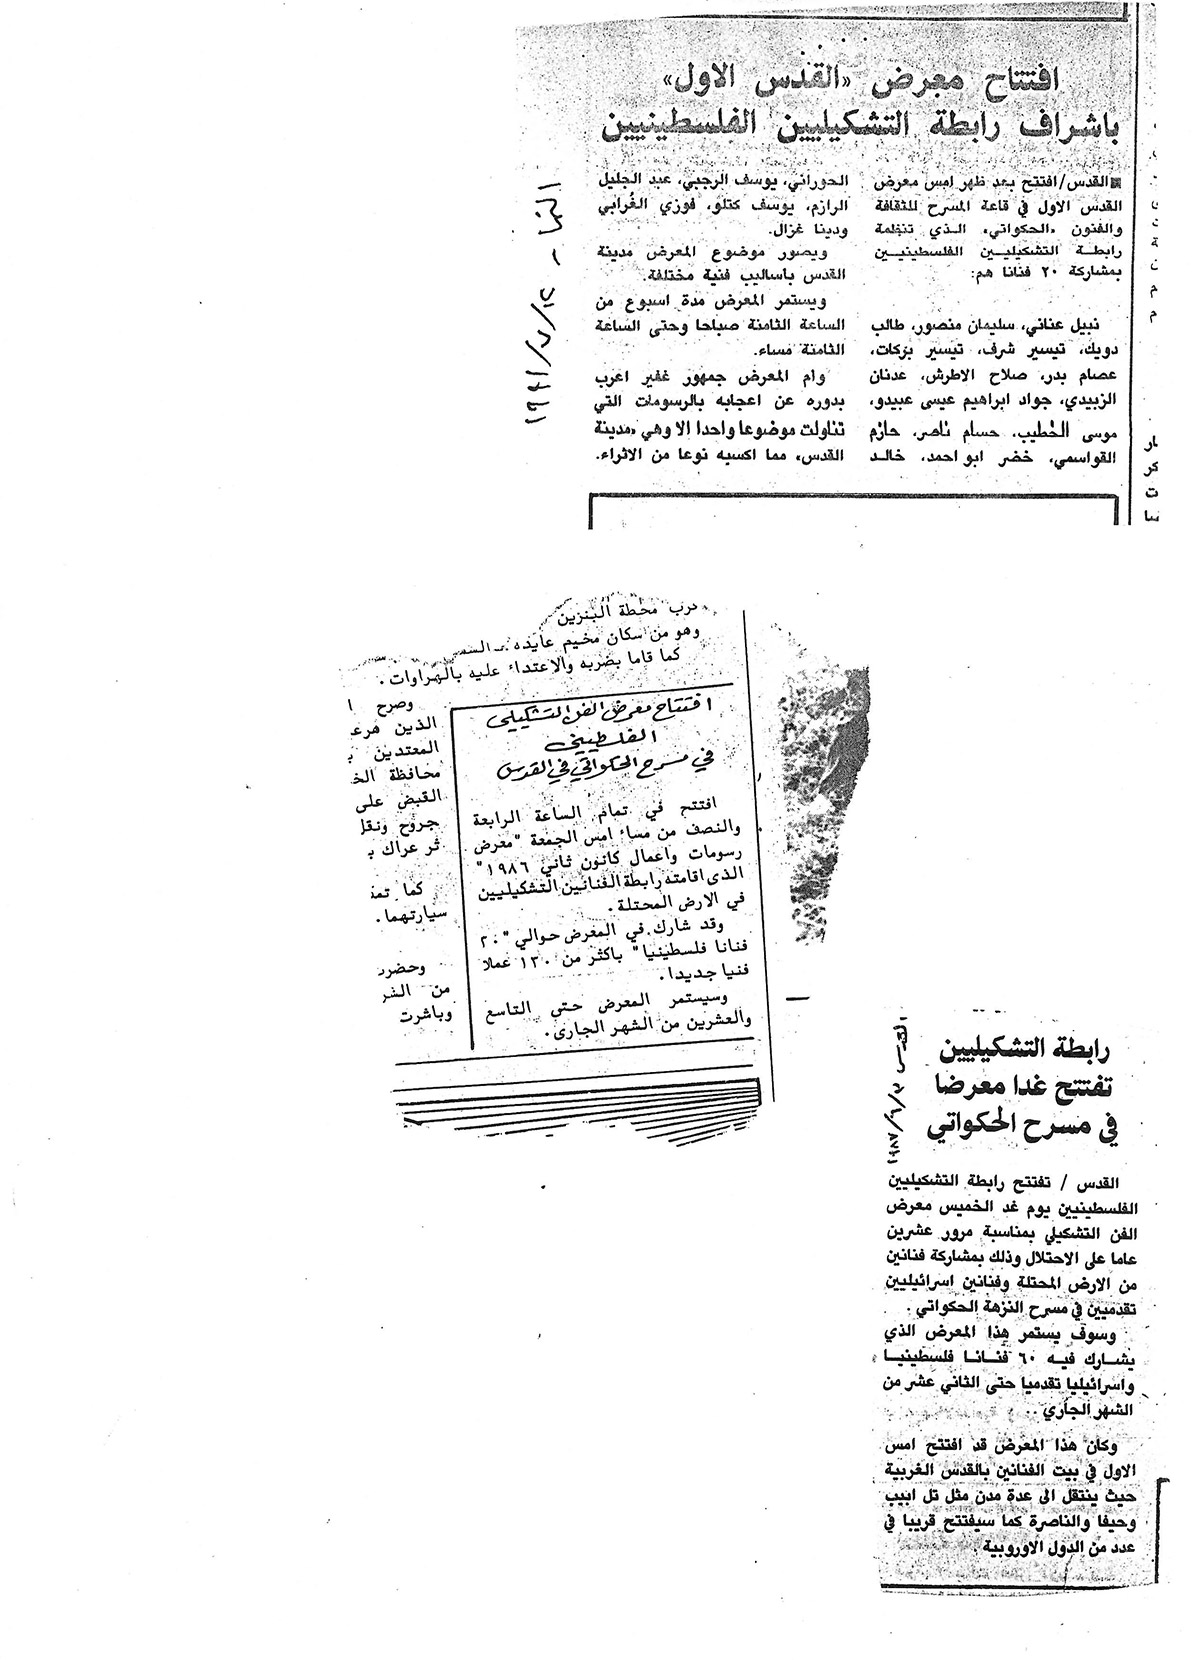 افتتاح معرض «القدس الاول»
باشراف رابطة التشكيليين الفلسطينيين
القدس/افتتح بعد ظهر امس معرض
القدس الاول في قاعة المسرح للثقافة
والفنون «الحكواتي» الذي تنظمة
رابطة التشكيليين الفلسطينيين
بمشاركة ٢٠ فنانا هم:
نبيل عناني، سليمان منصور، طالب
دويك، تيسير شرف، تيسير بركات،
عصام بدر، صلاح الاطرش، عدنان
الزبيدي، جواد ابراهيم عيسى عبيدو،
موسى الخطيب، حسام ناصر، حازم
القواسمي، خضر ابو احمد، خالد
الحوراني، يوسف الرجبي، عبد الجليل
الرازم، يوسف كتلو، فوزي الغرابي
ودينا غزال.
ويصور موضوع المعرض مدينة
القدس باساليب فنية مختلفة.
ويستمر المعرض مدة اسبوع من
الساعة الثامنة صباحا وحتى الساعة
الثامنة مساء.
وام المعرض جمهور غفير اعرب
بدوره عن اعجابه بالرسومات التي
تناولت موضوعا واحدا الا وهي «مدينة
القدس» مما اكسبه نوعا من الاثراء.
قرب محطة البنزين
وهو من سكان مخيم عايده
كما قاما بضربه والاعتداء عليه بالهراوات .
وصرح ا
الذين هرع
المعتدين ب
محافظة الخ
القبض على
جروح ونقل
ثر عراك ب
كما تمك
سيارتهما .
وحضرت
من الشر
وباشرت
افتتاح معرض الفن التشكيلي
الفلسطيني
في مسرح الحكواتي في القدس
افتتح في تمام الساعة الرابعة
والنصف من مساء امس الجمعة "معرض
رسومات واعمال كانون ثاني ١٩٨٦"
الذى اقامته رابطة الفنانين التشكيليين
في الارض المحتلة .
وقد شارك في المعرض حوالي "٢٠
فنانا فلسطينيا" باكثر من ١٣٠ عملا
فنيا جديدا .
وسيستمر المعرض حتى التاسع
والعشرين من الشهر الجارى .
القدس ٣/٦/١٩٨٧
رابطة التشكيليين
تفتتح غدا معرضا
في مسرح الحكواتي
القدس / تفتتح رابطة التشكيليين
الفلسطينيين يوم غد الخميس معرض
الفن التشكيلي بمناسبة مرور عشرين
عاما على الاحتلال وذلك بمشاركة فنانين
من الارض المحتلة وفنانين اسرائيليين
تقدميين في مسرح النزهة الحكواتي .
وسوف يستمر هذا المعرض الذي
يشارك فيه ٦٠ فنانا فلسطينيا
واسرائيليا تقدميا حتى الثاني عشر من
الشهر الجاري ..
وكان هذا المعرض قد افتتح امس
الاول في بيت الفنانين بالقدس الغربية
حيث ينتقل الى عدة مدن مثل تل ابيب
وحيفا والناصرة كما سيفتتح قريبا في
عدد من الدول الاوروبية .